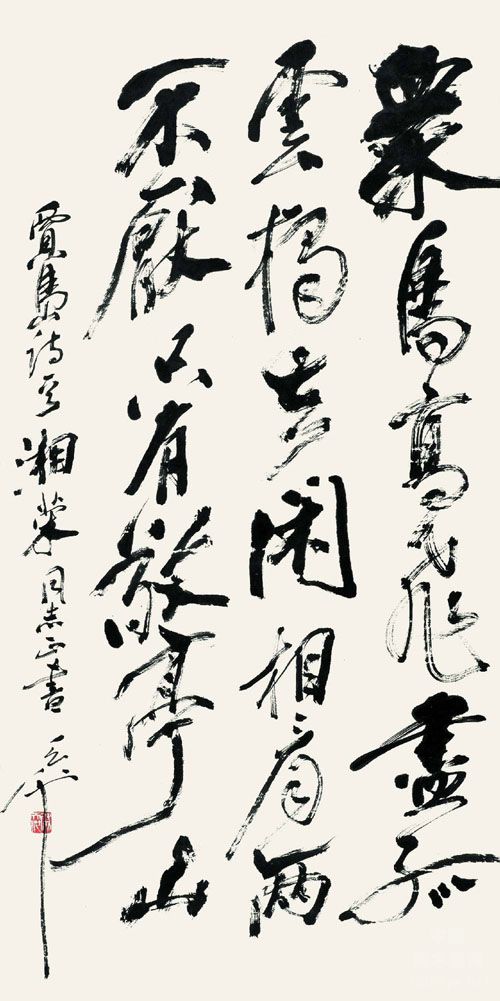 眾鳥高飛盡孤
雲獨去閑相看兩
不厭只有敬亭山
賈島詩 湘榮同志正書